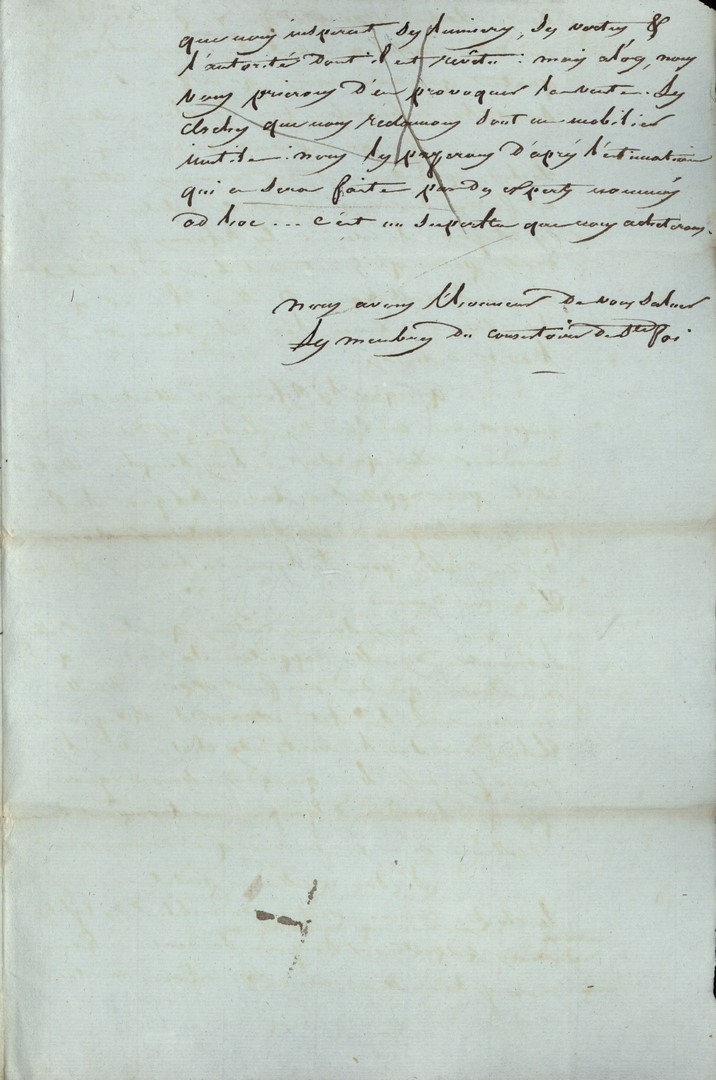 que nous inspirent ses lumieres, ses vertus &
l'autorité dont il est revêtu : mais alors, nous
vous prierons d'en provoquer la vente. Les
cloches que nous reclamons sont un mobilier
inutile : nous les payerons d'après l'estimation
qui en sera faite par des experts nommés
ad hoc ... c'est un superflu que nous acheterons.
nous avons l'honneur de vous saluer
Les membres du consistoire de Ste foi